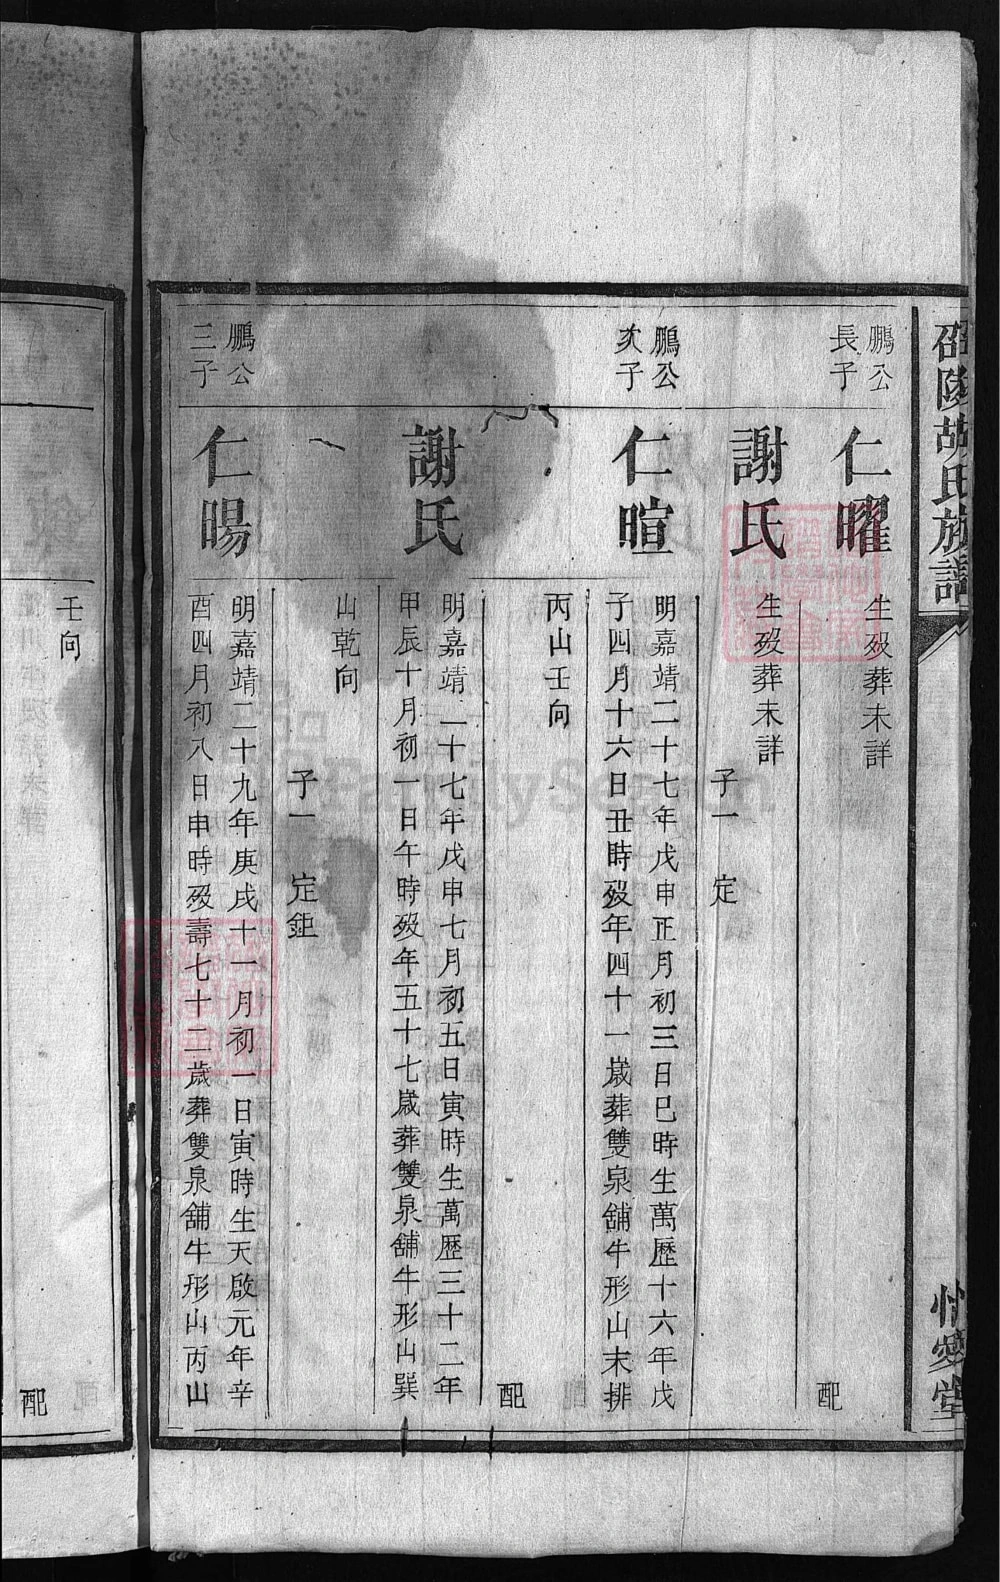 邵陵胡氏族譜
愛堂
鵬公
長子
仁曜
生歿葬未詳
配
謝氏
生歿葬未詳
子一 定
鵬公
次子
仁暄
明嘉靖二十七年戊申正月初三日巳時生萬歷十六年戊
子四月十六日丑時歿年四十一歲葬雙泉舖牛形山末排
丙山壬向
配
謝氏
明嘉靖二十七年戊申七月初五日寅時生萬歷三十二年
甲辰十月初一日午時歿年五十七歲葬雙泉舖牛形山巽
山乾向
子一 定鉅
鵬公
三子
仁暘
明嘉靖二十九年庚戌十一月初一日寅時生天啟元年辛
酉四月初八日申時歿壽七十二歲葬雙泉舖牛形山丙山
壬向
配
FamilySearch